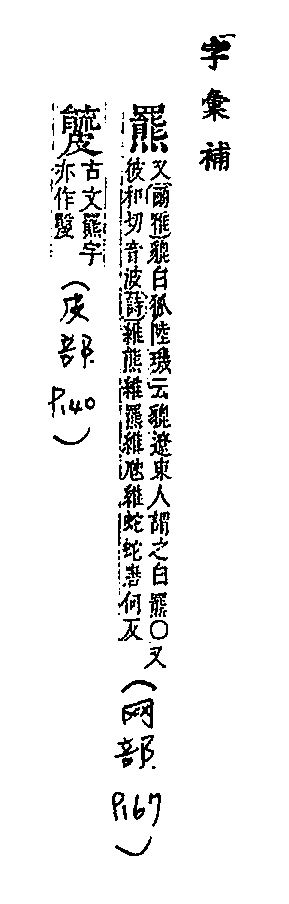 字彙補
羆
又爾雅貔白狐陸璣云貔遼東人謂之白羆○又
彼和切音波詩維熊維羆維虺維蛇蛇
何反
(网部
P.167)
古文羆字
亦作
(皮部
P.140)